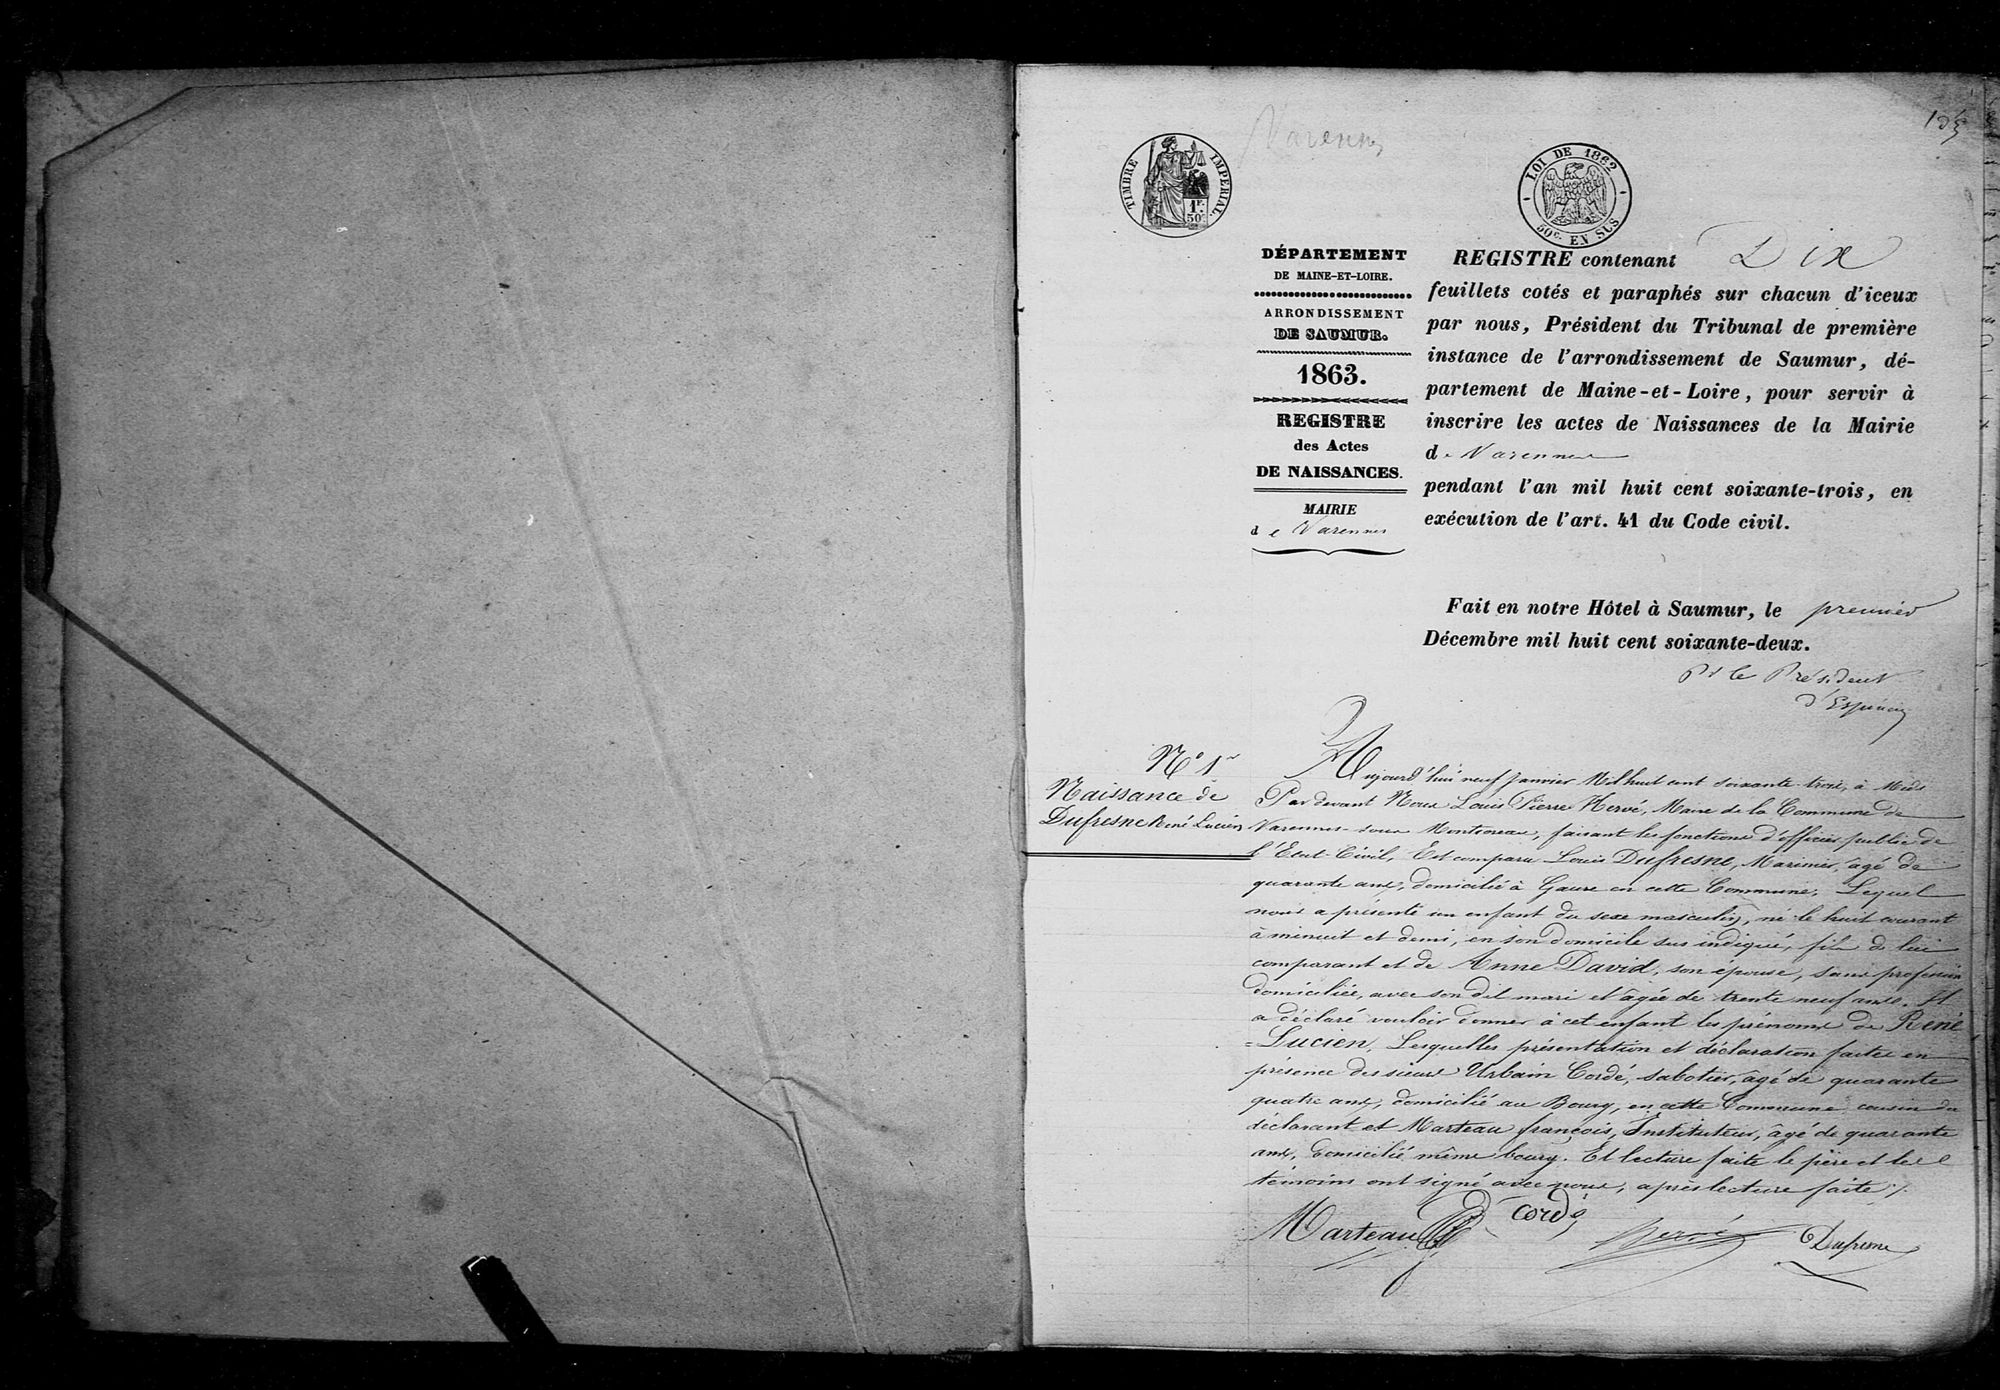 Varennes
TIMBRE IMPERIAL
1F.
50c
LOI DE 1862
50c. EN SUS
DÉPARTEMENT
DE MAINE-ET-LOIRE.
ARRONDISSEMENT
DE SAUMUR.
1863.
REGISTRE
des Actes
DE NAISSANCES.
MAIRIE
de Varennes
REGISTRE contenant Dix
feuillets cotés et paraphés sur chacun d'iceux
par nous, Président du Tribunal de première
instance de l'arrondissement de Saumur, dé-
partement de Maine-et-Loire, pour servir à
inscrire les actes de Naissances de la Mairie
de Varennes
pendant l'an mil huit cent soixante-trois, en
exécution de l'art. 41 du Code civil.
Fait en notre Hôtel à Saumur, le premier
Décembre mil huit cent soixante-deux.
Pr le Président
N° 1er
Naissance de
Dufresne René Lucien
Aujourd'hui neuf Janvier Mil huit cent soixante trois, à Midi
Par devant Nous Louis Pierre Hervé, Maire de la Commune de
Varennes-sous Montsoreau, faisant les fonctions d'officier public de
l'Etat-Civil, Est comparu Louis Dufresne, Marinier, âgé de
quarante ans, domicilié à Gaure en cette Commune; Lequel
nous a présenté un enfant du sexe masculin, né le huit courant
à minuit et demi, en son domicile sus indiqué, fils de lui
comparant et de Anne David, son épouse, sans profession
domiciliée, avec son dit mari et âgée de trente neuf ans. Il
a déclaré vouloir donner à cet enfant les prénoms de René
=Lucien. Lesquelles présentation et déclaration faites en
présence des sieurs Urbain Cordé, sabotier, âgé de quarante
quatre ans, domicilié au Bourg, en cette Commune cousin du
déclarant et Marteau françois, Instituteur, âgé de quarante
ans, domicilié même bourg. Et lecture faite le père et les
témoins ont signé avec nous, après lecture faite ./.
Marteau Cordé Hervé Dufresne